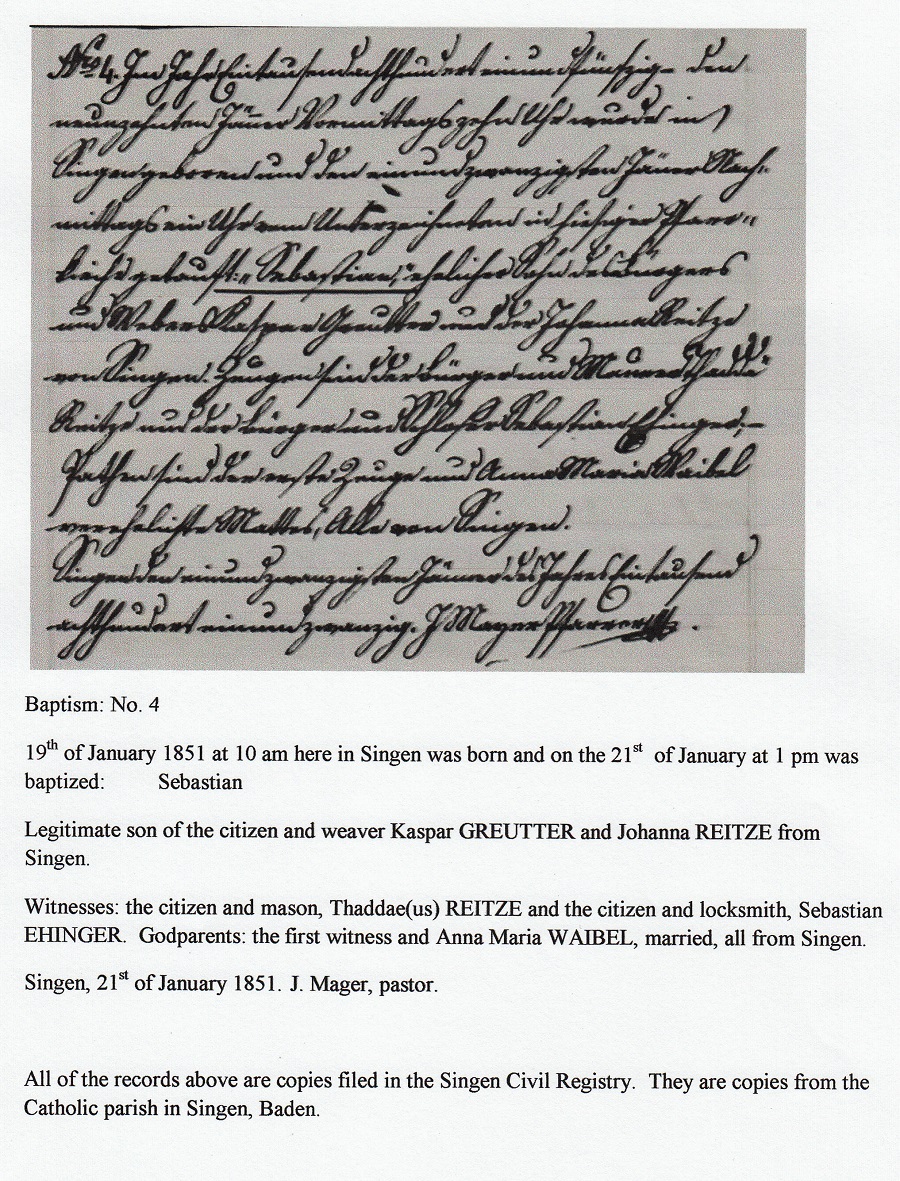 No 4. Im Jahr Eintausendachthundert einundfünfzig den
neunzehnten Jäner Vormittags zehn Uhr wurde in
Singen geboren und den einundzwanzigsten Jäner Nach-
mittags ein Uhr vom Unterzeichneten in hiesiger Pfarr-
kirche getauft: „Sebastian", ehelicher Sohn des Bürgers
und Webers Kaspar Greutter und der Johanna Reitze
von Singen. Zeugen sind der Bürger und Maurer Thaddä
Reitze und der Bürger und Schlosser Sebastian Ehinger,-
Pathen sind der erste Zeuge und Anna Maria Waibel
verehelichte Mattes, Alle von Singen.
Singen den einundzwanzigsten Jänner des Jahres Eintausend
achthundert einundzwanzig. J Mayer Pfarrer
Baptism: No. 4
19th of January 1851 at 10 am here in Singen was born and on the 21st of January at 1 pm was
baptized: Sebastian
Legitimate son of the citizen and weaver Kaspar GREUTTER and Johanna REITZE from
Singen.
Witnesses: the citizen and mason, Thaddae(us) REITZE and the citizen and locksmith, Sebastian
EHINGER. Godparents: the first witness and Anna Maria WAIBEL, married, all from Singen.
Singen, 21st of January 1851. J. Mager, pastor.
All of the records above are copies filed in the Singen Civil Registry. They are copies from the
Catholic parish in Singen, Baden.